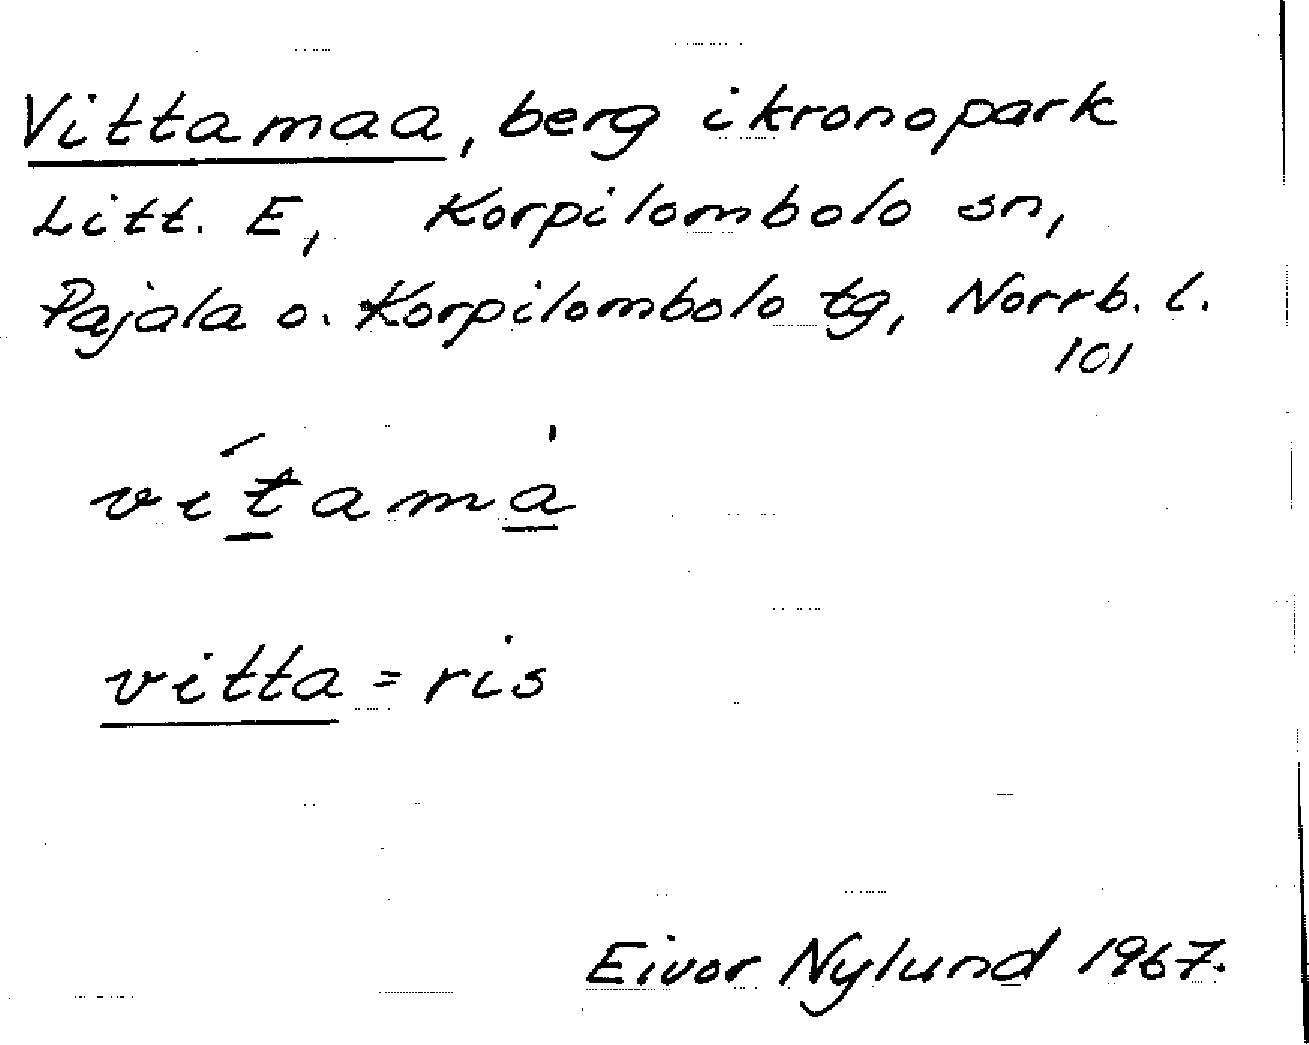 Vittamaa, berg i kronopark
Litt. E, Korpilombolo sn,
Pajala o. Korpilombolo tg, Norrb. l.
101
vítamà
vitta = ris
Eivor Nylund 1967.